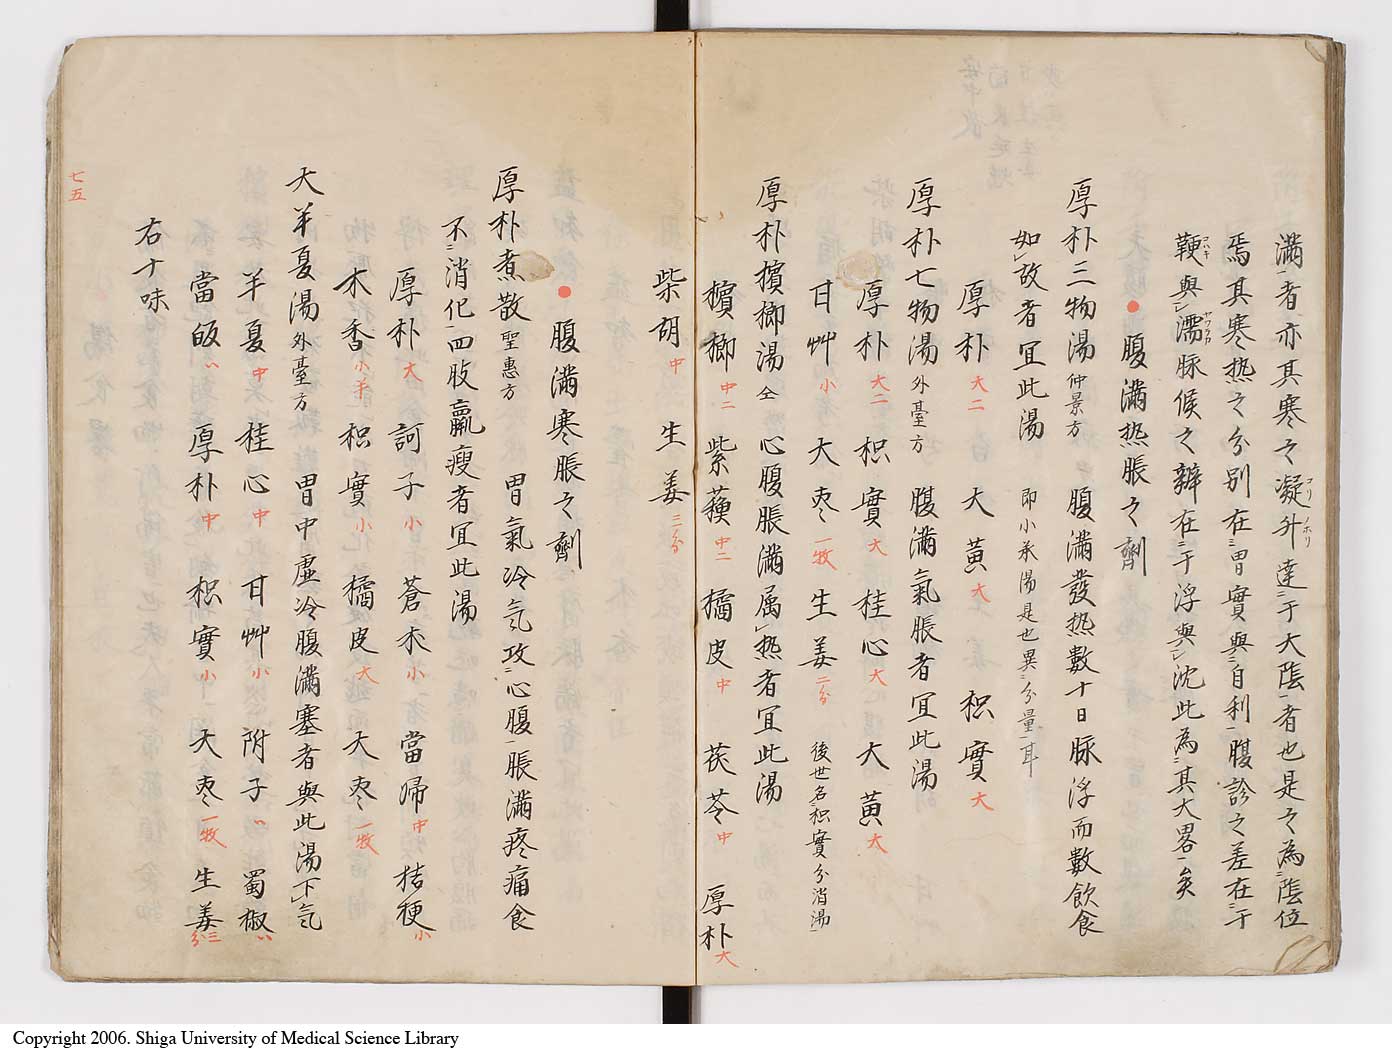 滿一者亦其寒之凝升達三于大陰一者也是之為二陰位
焉其寒热之分别在三胃實與二自利一腹診之差在三于
鞕與レ濡脉候之辨在三于浮與レ沈此為二其大畧一矣
腹滿热脹之劑
厚朴三物湯仲景方 腹滿發热數十日脉浮而數飲食
如レ故者宜此湯 即小承湯是也異二分量一耳
厚朴大二 大黄大 枳實大
厚朴七物湯外臺方 腹滿氣脹者宜此湯
厚朴大二 枳實大 桂心大 大黄大
甘艸小 大枣一枚 生姜二分 後世名二枳實分消湯一
厚朴檳榔湯仝 心腹脹滿属レ热者宜此湯
檳榔中二 紫蘓中二 橘皮中 茯苓中 厚朴大
柴胡中 生姜三分
腹滿寒脹之劑
厚朴煮散聖惠方 胃氣冷气攻二心腹一脹滿疼痛食
不二消化一四肢羸瘦者宜此湯
厚朴大 訶子小 蒼朮小 當帰中 桔梗小
木香小半 枳實小 橘皮大 大枣一枚
大半夏湯外臺方 胃中虚冷腹滿塞者與此湯下レ气
半夏中 桂心中 甘艸小 附子〃 蜀椒〃
當皈〃 厚朴中 枳實小 大枣一枚 生姜三分
右十味
七五
Copyright 2006. Shiga University of Medical Science Library